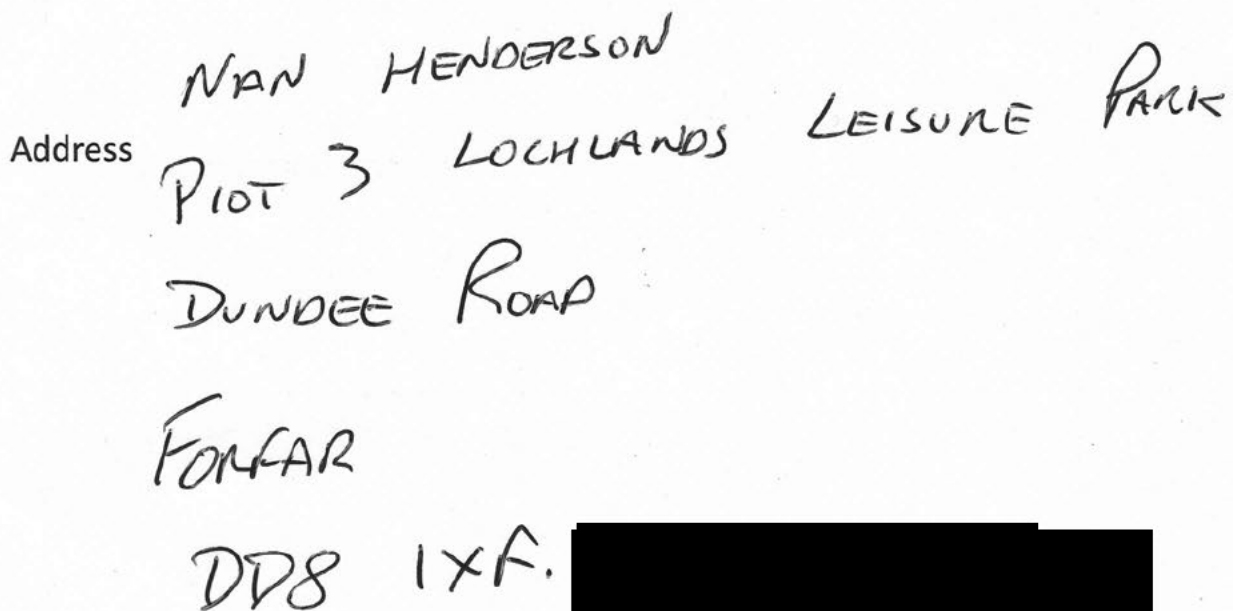 NAN HENDERSON
Address
PlOT 3 LOCHLANDS LEISURE PARK
DUNDEE ROAD
FORFAR
DD8 1XF.